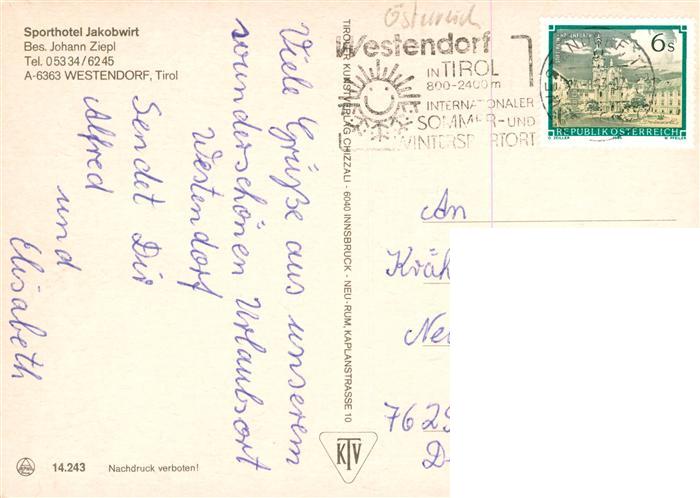 Sporthotel Jakobwirt
Bes. Johann Ziepl
Tel. 05334/6245
A-6363 WESTENDORF, Tirol
Viele Grüße aus unserem
wunderschönen Urlaubsort
Westendorf
Sendet Dir
Alfred
und
Elisabeth
14.243 Nachdruck verboten!
TIROLER KUNSTVERLAG CHIZZALI - 6040 INNSBRUCK - NEU-RUM, KAPLANSTRASSE 10
KTV
Österreich
Westendorf
IN TIROL
800-2400m
INTERNATIONALER
SOMMER- UND
WINTERSPORTORT
6s
REPUBLIK ÖSTERREICH
O. ZEILLER W. PFEILER
An
Kräh
Ne
762
D-